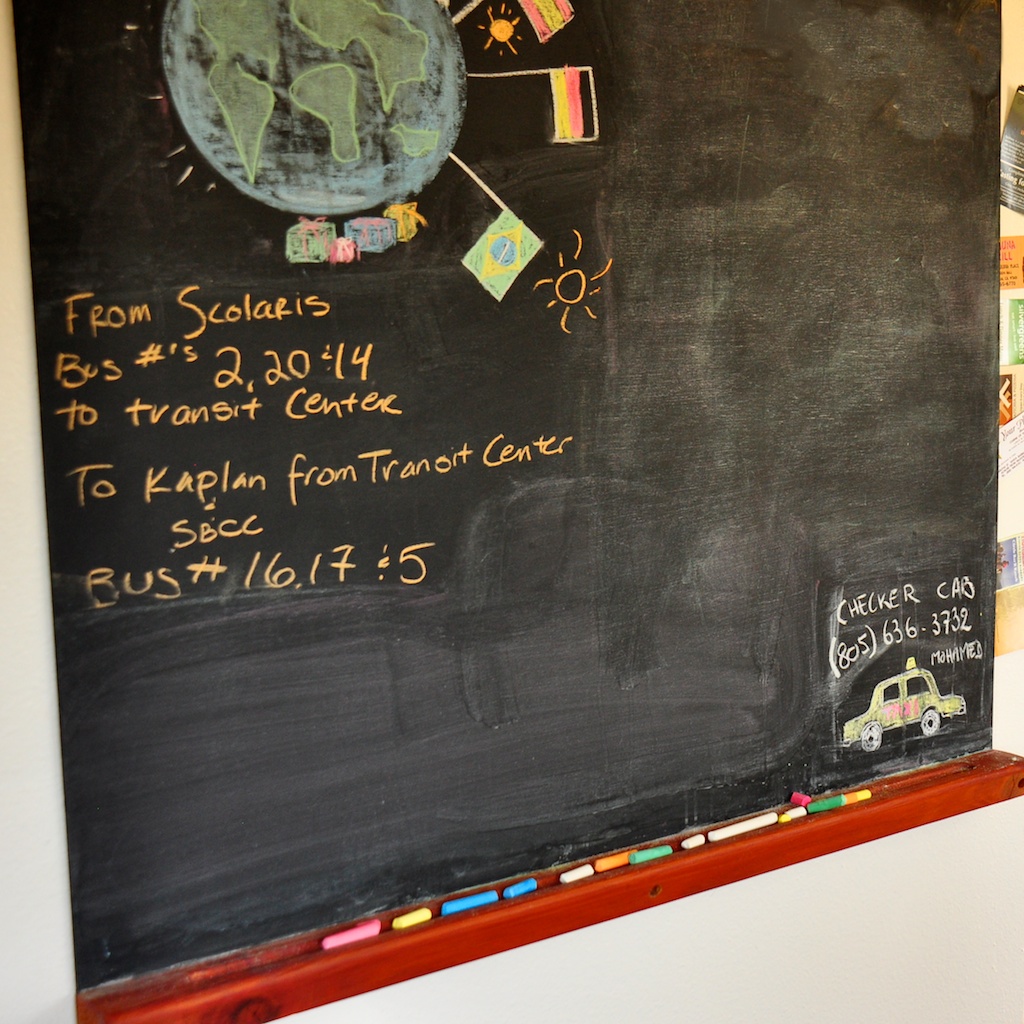 From Scolaris
Bus #'s 2, 20 & 14
to transit Center
To Kaplan from Transit Center
SBCC
BUS # 16, 17 & 5
CHECKER CAB
(805) 636-3732
MOHAMED
TAXI